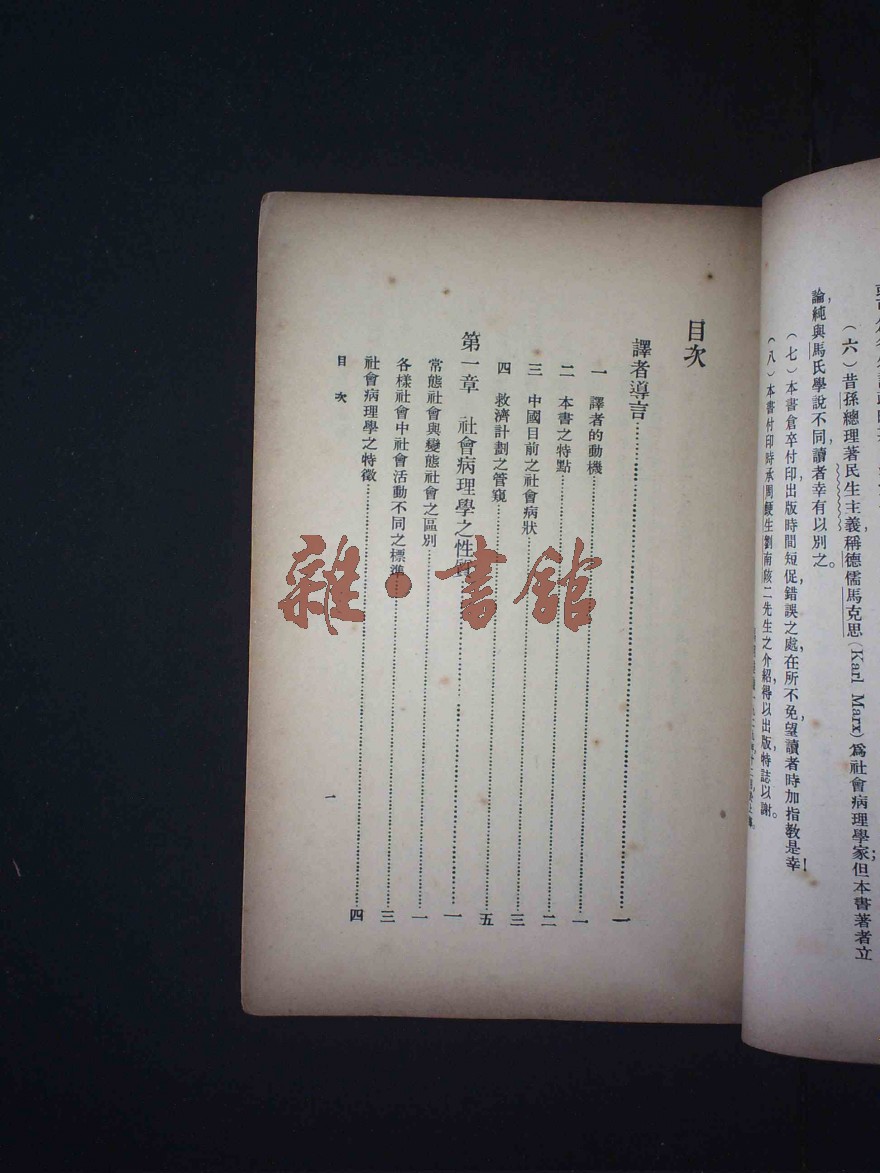 (六)昔孫總理著民生主義,稱德儒馬克思(Karl Marx)爲社會病理學家;但本書著者立
論,純與馬氏學說不同,讀者幸有以別之。
(七)本書倉卒付印,出版時間短促,錯誤之處,在所不免,望讀者時加指教是幸!
(八)本書付印時,承周鯁生劉南陔二先生之介紹,得以出版,特誌以謝。
目次
譯者導言……一
一 譯者的動機……一
二 本書之特點……二
三 中國目前之社會病狀……三
四 救濟計劃之管窺……五
第一章 社會病理學之性質……一
常態社會與變態社會之區別……一
各樣社會中社會活動不同之標準……三
社會病理學之特徵……四
目次
一
雜·書館